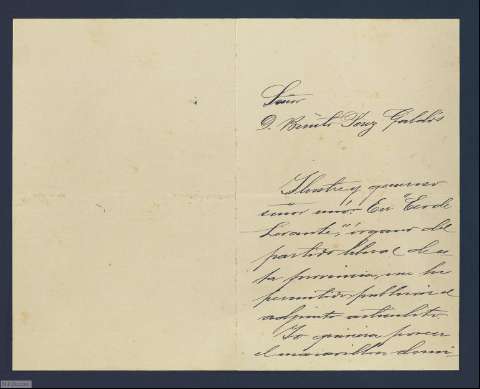 Señor
D. Benito Pérez Galdós
Ilustre y generoso
señor mío: En "Eco de
Levante", órgano del
partido liberal de es-
ta provincia, me he
permitido publicar el
adjunto articulito.
Yo quisiera poseer
el maravilloso domi